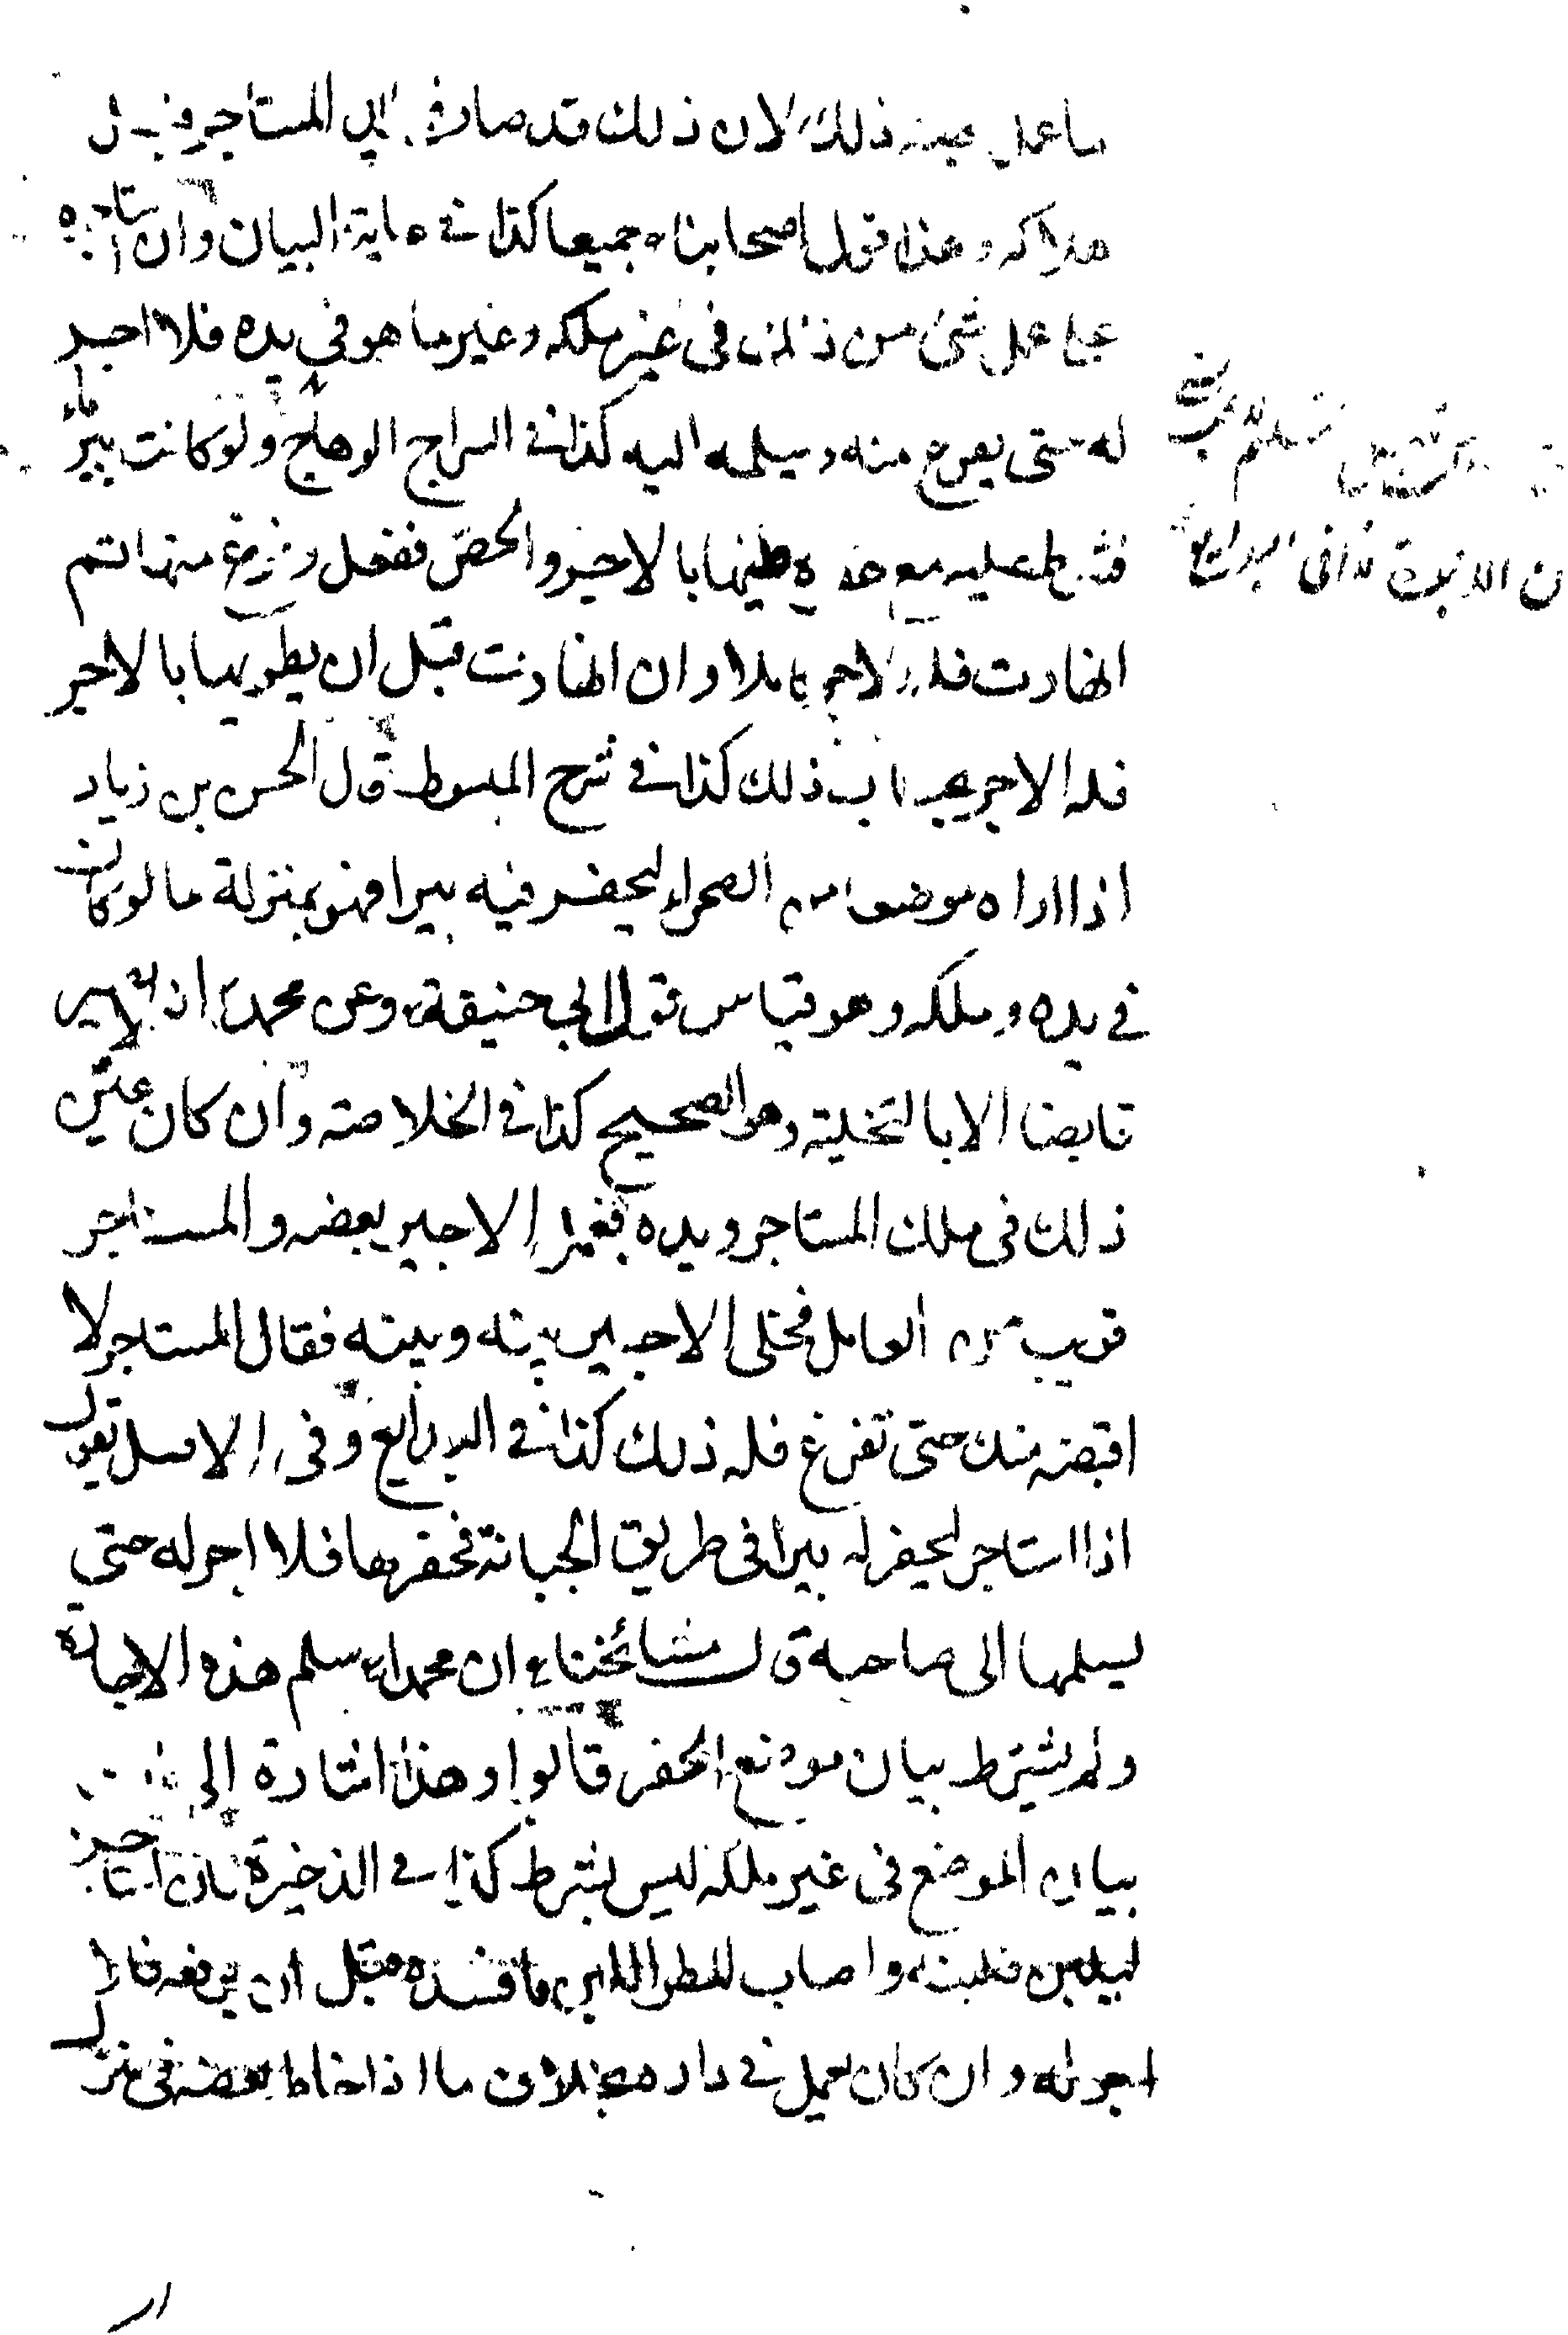 ما عمل من ذلك لان ذلك قد صار في يدي المستاجر قبل
هلاكه وهذا قول اصحابنا جميعا كذا في غاية البيان وان استاجره
على عمل شئ من ذلك في غير ملكه وغير ما هو في يده فلا اجر
له حتى يفرغ منه ويسلمه اليه كذا في السراج الوهاج ولو كانت بير ماء
فشرط عليه مع حفره طيها بالاجر والجص ففعل وفرغ منها ثم
انهارت فله الاجر كاملا وان انهارت قبل ان يطويها بالاجر
فله الاجر بحساب ذلك كذا في شرح المبسوط قال الحسن بن زياد
اذا اراه موضعا من الصحراء ليحفر فيه بيرا فهو بمنزلة ما لو كان
في يده وملكه وهو قياس قول ابي حنيفة وعن محمد انه لا يصير
قابضا الا بالتخلية وهو الصحيح كذا في الخلاصة وان كان عين
ذلك في ملك المستاجر ويده فعمل الاجير بعضه والمستاجر
قريب من العامل فخلى الاجير بينه وبينه فقال المستاجر لا
اقبضه منك حتى تفرغ فله ذلك كذا في البدايع وفي الاصل يقول
اذا استاجر ليحفر له بيرا في طريق الجبانة فحفرها فلا اجر له حتى
يسلمها الى صاحبه قال مشائخنا ان محمدا سلم هذه الاجارة
ولم يشترط بيان موضع الحفر قالوا وهذا اشارة الى
بيان الموضع في غير ملكه ليس بشرط كذا في الذخيرة فان استاجر
ليلبن فلبنه واصاب المطر اللبن فافسده قبل ان يرفعه فلا
اجر له وان كان يعمل في داره بخلاف ما اذا خاط بعضه في منزل
كذا في البدايع